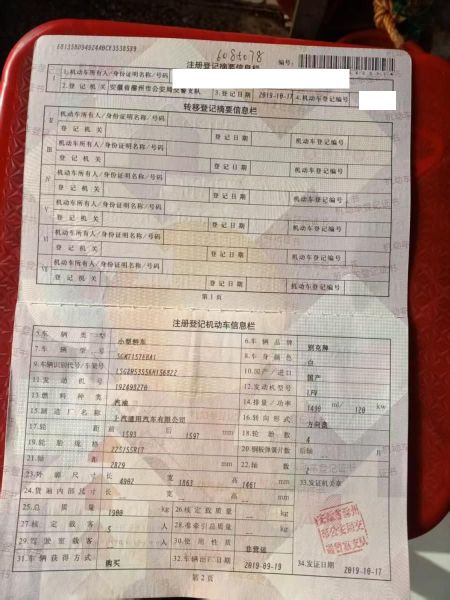 注册登记摘要信息栏
编号:
1.机动车所有人/身份证明名称/号码
2.登记机关 安徽省滁州市公安局交警支队 3.登记日期 2019-10-17 4.机动车登记编号
转移登记摘要信息栏
II 机动车所有人/身份证明名称/号码
登记机关 登记日期 机动车登记编号
III 机动车所有人/身份证明名称/号码
登记机关 登记日期 机动车登记编号
IV 机动车所有人/身份证明名称/号码
登记机关 登记日期 机动车登记编号
V 机动车所有人/身份证明名称/号码
登记机关 登记日期 机动车登记编号
VI 机动车所有人/身份证明名称/号码
登记机关 登记日期 机动车登记编号
VII 机动车所有人/身份证明名称/号码
登记机关 登记日期 机动车登记编号
第1页
注册登记机动车信息栏
5.车辆类型 小型轿车 6.车辆品牌 别克牌
7.车辆型号 8.车身颜色 白
9.车辆识别代号/车架号 10.国产/进口 国产
11.发动机号 12.发动机型号 LFV
13.燃料种类 汽油 14.排量/功率 ml/ kw
15.制造厂名称 上汽通用汽车有限公司 16.转向形式 方向盘
17.轮距 前 1593 后 1597 mm 18.轮胎数 4
19.轮胎规格 225/55R17 20.钢板弹簧片数 后轴 片
21.轴距 2829 mm 22.轴数 2
23.外廓尺寸 长 4902 宽 1863 高 1461 mm 33.发证机关章
24.货厢内部尺寸 长 宽 高 mm
25.总质量 1900 kg 26.核定载质量 kg
27.核定载客 5 人 28.准牵引总质量 kg
29.驾驶室载客 人 30.使用性质 非营运
31.车辆获得方式 购买 32.车辆出厂日期 2019-09-19 34.发证日期 2019-10-17
第2页